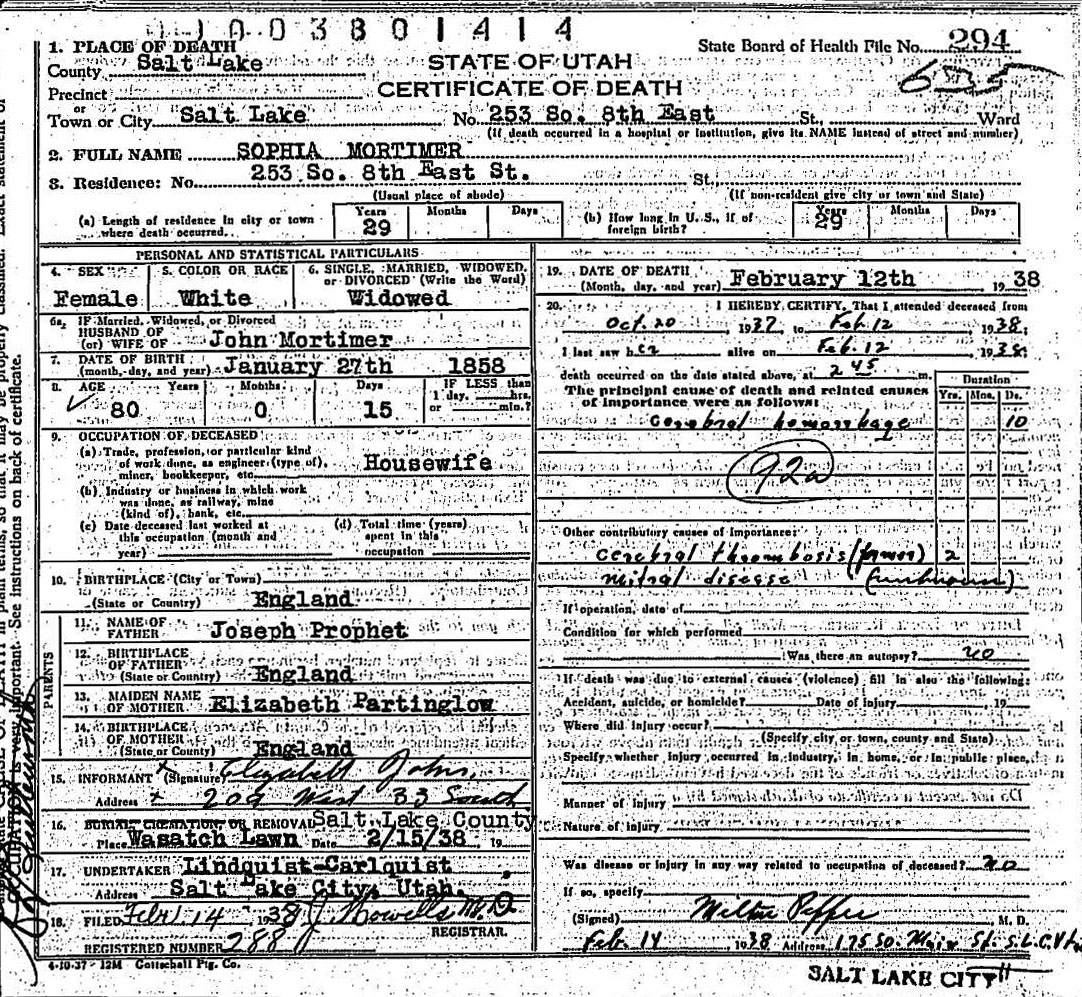 1003801414
1. PLACE OF DEATH
County Salt Lake
STATE OF UTAH
State Board of Health File No. 294
635
Precinct
CERTIFICATE OF DEATH
or
Town or City Salt Lake No. 253 So. 8th East St., Ward
(If death occurred in a hospital or institution, give its NAME instead of street and number)
2. FULL NAME SOPHIA MORTIMER
3. Residence: No. 253 So. 8th East St. St.
(Usual place of abode) (If non-resident give city or town and State)
(a) Length of residence in city or town where death occurred. Years 29 Months Days
(b) How long in U. S., if of foreign birth? Years 29 Months Days
PERSONAL AND STATISTICAL PARTICULARS
4. SEX 5. COLOR OR RACE 6. SINGLE, MARRIED, WIDOWED, or DIVORCED (Write the Word)
Female White Widowed
6a. IF Married, Widowed, or Divorced
HUSBAND OF
(or) WIFE OF John Mortimer
7. DATE OF BIRTH
(month, day, and year) January 27th 1858
8. AGE Years Months Days IF LESS than
1 day, hrs.
or min.?
80 0 15
9. OCCUPATION OF DECEASED
(a) Trade, profession, or particular kind
of work done, as engineer (type of),
miner, bookkeeper, etc. Housewife
(b) Industry or business in which work
was done, as railway, mine
(kind of), bank, etc.
(c) Date deceased last worked at
this occupation (month and
year)
(d) Total time (years)
spent in this
occupation
10. BIRTHPLACE (City or Town)
(State or Country) England
PARENTS
11. NAME OF
FATHER Joseph Prophet
12. BIRTHPLACE
OF FATHER
(State or Country) England
13. MAIDEN NAME
OF MOTHER Elizabeth Partinglow
14. BIRTHPLACE
OF MOTHER
(State or County) England
15. INFORMANT (Signature) Elizabeth Johns.
Address 209 West 33 South
16. BURIAL CREMATION OR REMOVAL Salt Lake County
Place Wasatch Lawn Date 2/15/38, 19
17. UNDERTAKER Lindquist-Carlquist
Address Salt Lake City, Utah.
18. FILED Feb 14 1938 J. Howells M.D.
REGISTRAR.
REGISTERED NUMBER 288
4-10-37-12M Gottschall Ptg. Co.
19. DATE OF DEATH
(Month, day, and year) February 12th 1938
20. I HEREBY CERTIFY, That I attended deceased from
Oct. 20 1937, to Feb. 12 1938.
I last saw her alive on Feb. 12 1938.
death occurred on the date stated above, at 2 45 m.
The principal cause of death and related causes
of importance were as follows:
Duration
Yrs. Mos. Ds.
Cerebral hemorrhage 10
92a
Other contributory causes of importance:
Cerebral thrombosis (former) 2
mitral disease (unknown)
If operation, date of
Condition for which performed
Was there an autopsy? no
If death was due to external causes (violence) fill in also the following:
Accident, suicide, or homicide? Date of injury, 19
Where did injury occur?
(Specify city or town, county and State)
Specify whether injury occurred in industry, in home, or in public place,
Manner of injury
Nature of injury
Was disease or injury in any way related to occupation of deceased? no
If so, specify
(Signed) Milton Pepper M. D.
Feb. 14 1938 Address 175 So. Main St. S.L.C. Utah
SALT LAKE CITY
in plain terms, so that it may be properly classified. Exact statement of
important. See instructions on back of certificate.